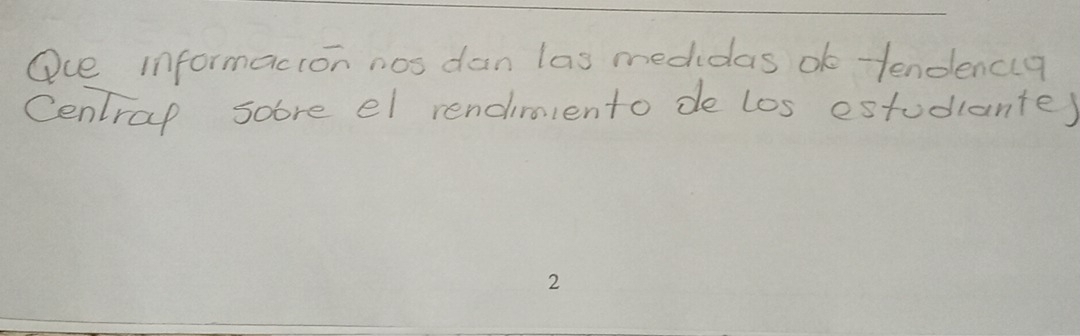 Que información nos dan las medidas de tendencia
Central sobre el rendimiento de los estudiantes
2